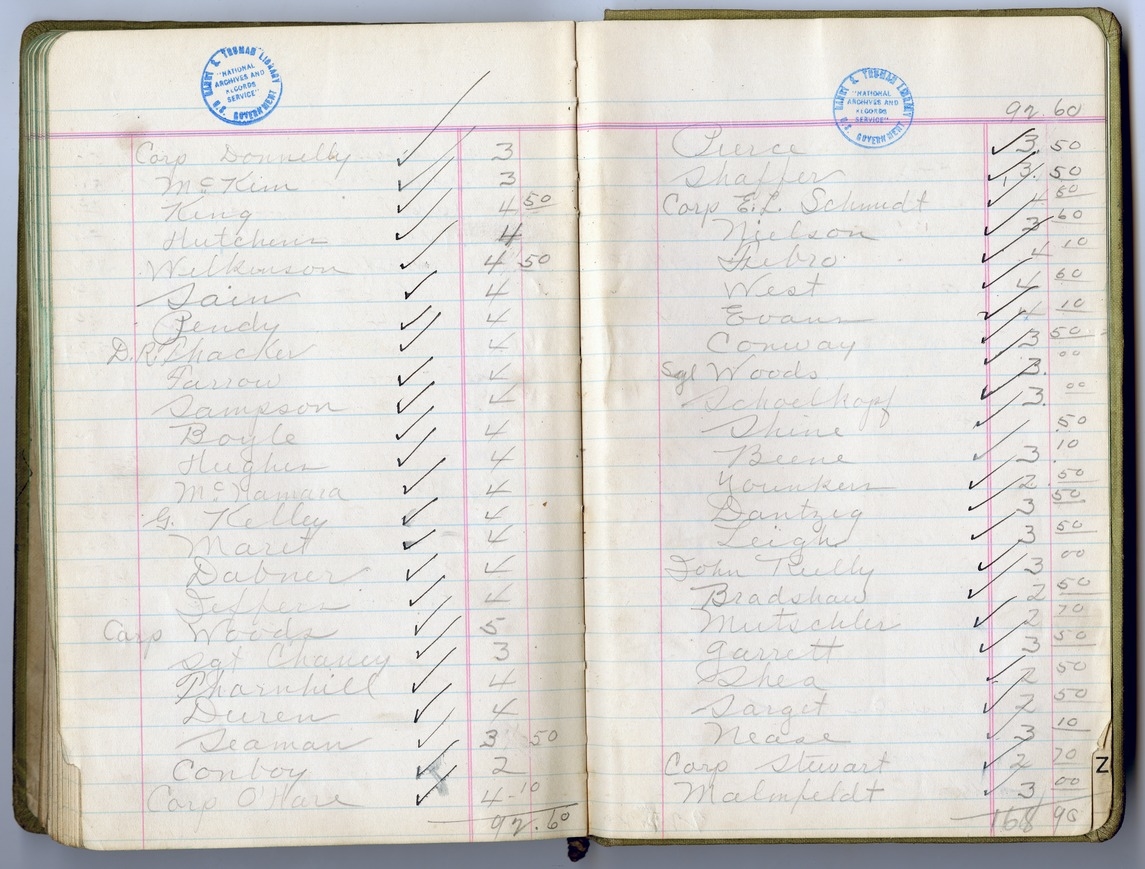 HARRY S. TRUMAN LIBRARY
"NATIONAL
ARCHIVES AND
RECORDS
SERVICE"
U.S. GOVERNMENT
Corp Donnelly 3
McKim 3
King 4 50
Hutchins 4
Wilkinson 4 50
Sain 4
Pendy 4
D.R. Thacker 4
Farrow 4
Sampson 4
Boyle 4
Hughes 4
McNamara 4
G. Kelley 4
Maret 4
Dabner 4
Jeffers 4
Corp Woods 5
Sgt Chaney 3
Thornhill 4
Duren 4
Seaman 3 50
Conboy 2
Corp O'Hare 4-10
92.60
HARRY S. TRUMAN LIBRARY
"NATIONAL
ARCHIVES AND
RECORDS
SERVICE"
U.S. GOVERNMENT
92.60
Pierce 3. 50
Shaffer 3. 50
Corp E.L. Schmidt 4 60
Nielson 2 60
4 10
West 4 60
Evans 4 10
Conway 3 50
Sgt Woods 3. 00
Schoelkopf 3. 00
Shine 50
Beene 3 10
Younkers 2 50
Dantzig 3 50
Leigh 3 50
John Kelly 3 00
Bradshaw 2 50
Mutschler 2 70
Garrett 3 50
Shea 2 50
Sarget 2 50
Nease 3 10
Corp Stewart 2 70
Malmfeldt 3 00
168 90
Z